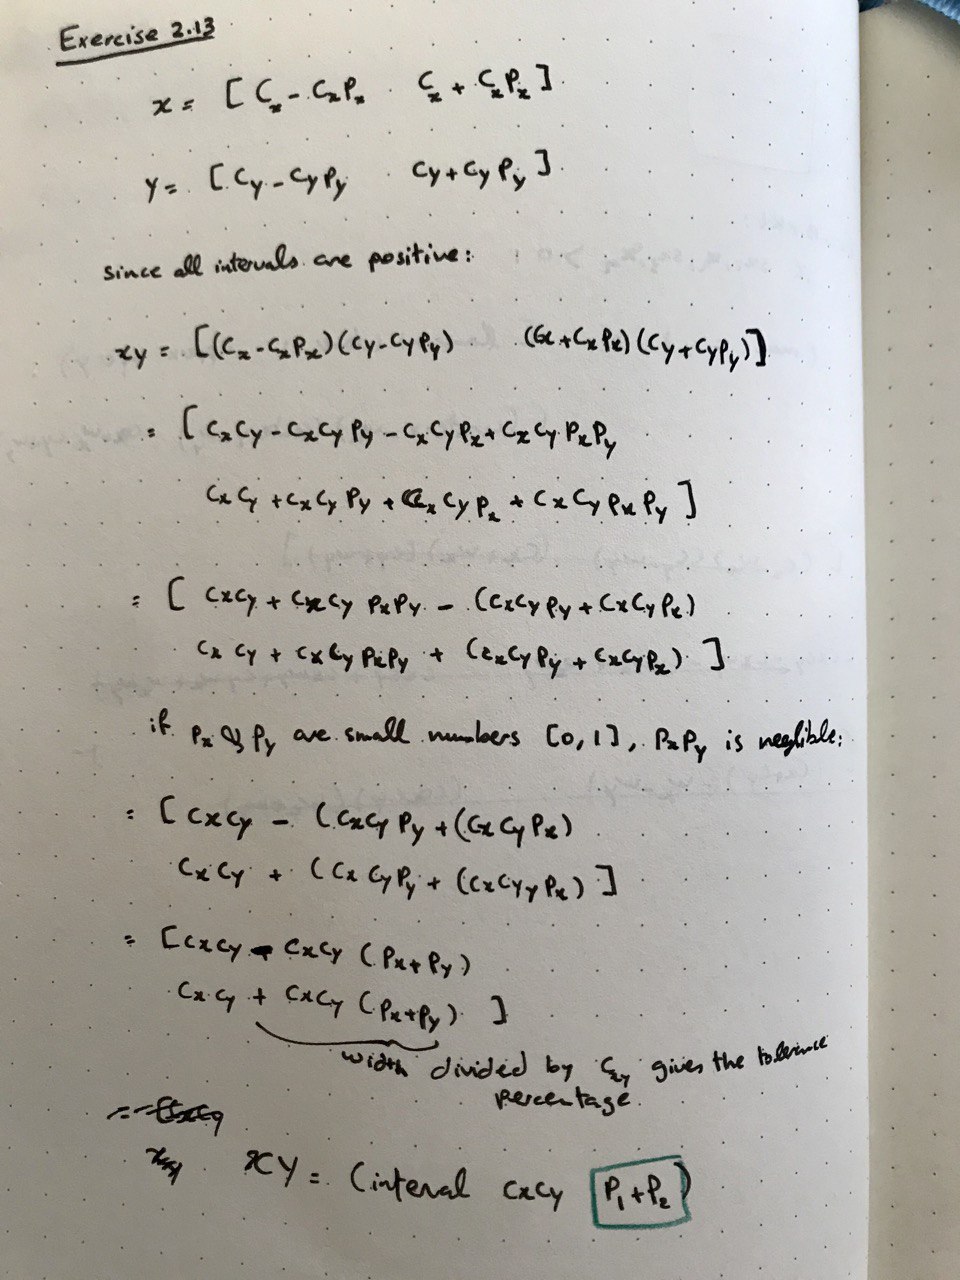 Exercise 2.13
x = [ Cx - CxPx Cx + CxPx ]
y = [ Cy - CyPy Cy + CyPy ]
since all intervals are positive:
xy = [(Cx - CxPx)(Cy - CyPy) (Cx + CxPx)(Cy + CyPy)]
= [ CxCy - CxCy Py - CxCyPx + CxCy PxPy
CxCy + CxCy Py + CxCyPx + CxCyPxPy ]
= [ CxCy + CxCy PxPy - (CxCyPy + CxCyPx)
CxCy + CxCyPxPy + (CxCyPy + CxCyPx) ]
if Px & Py are small numbers [0,1], PxPy is neglible:
= [ CxCy - (CxCyPy + ((CxCyPx)
CxCy + (CxCyPy + ((CxCyyPx) ]
= [CxCy - CxCy (Px + Py)
CxCy + CxCy (Px+Py) ]
width divided by Cxy gives the tolerance
percentage.
xy = (interval CxCy P1+P2)